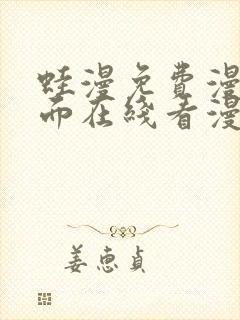 蛙漫免费漫
而在线看漫
姜惠贞